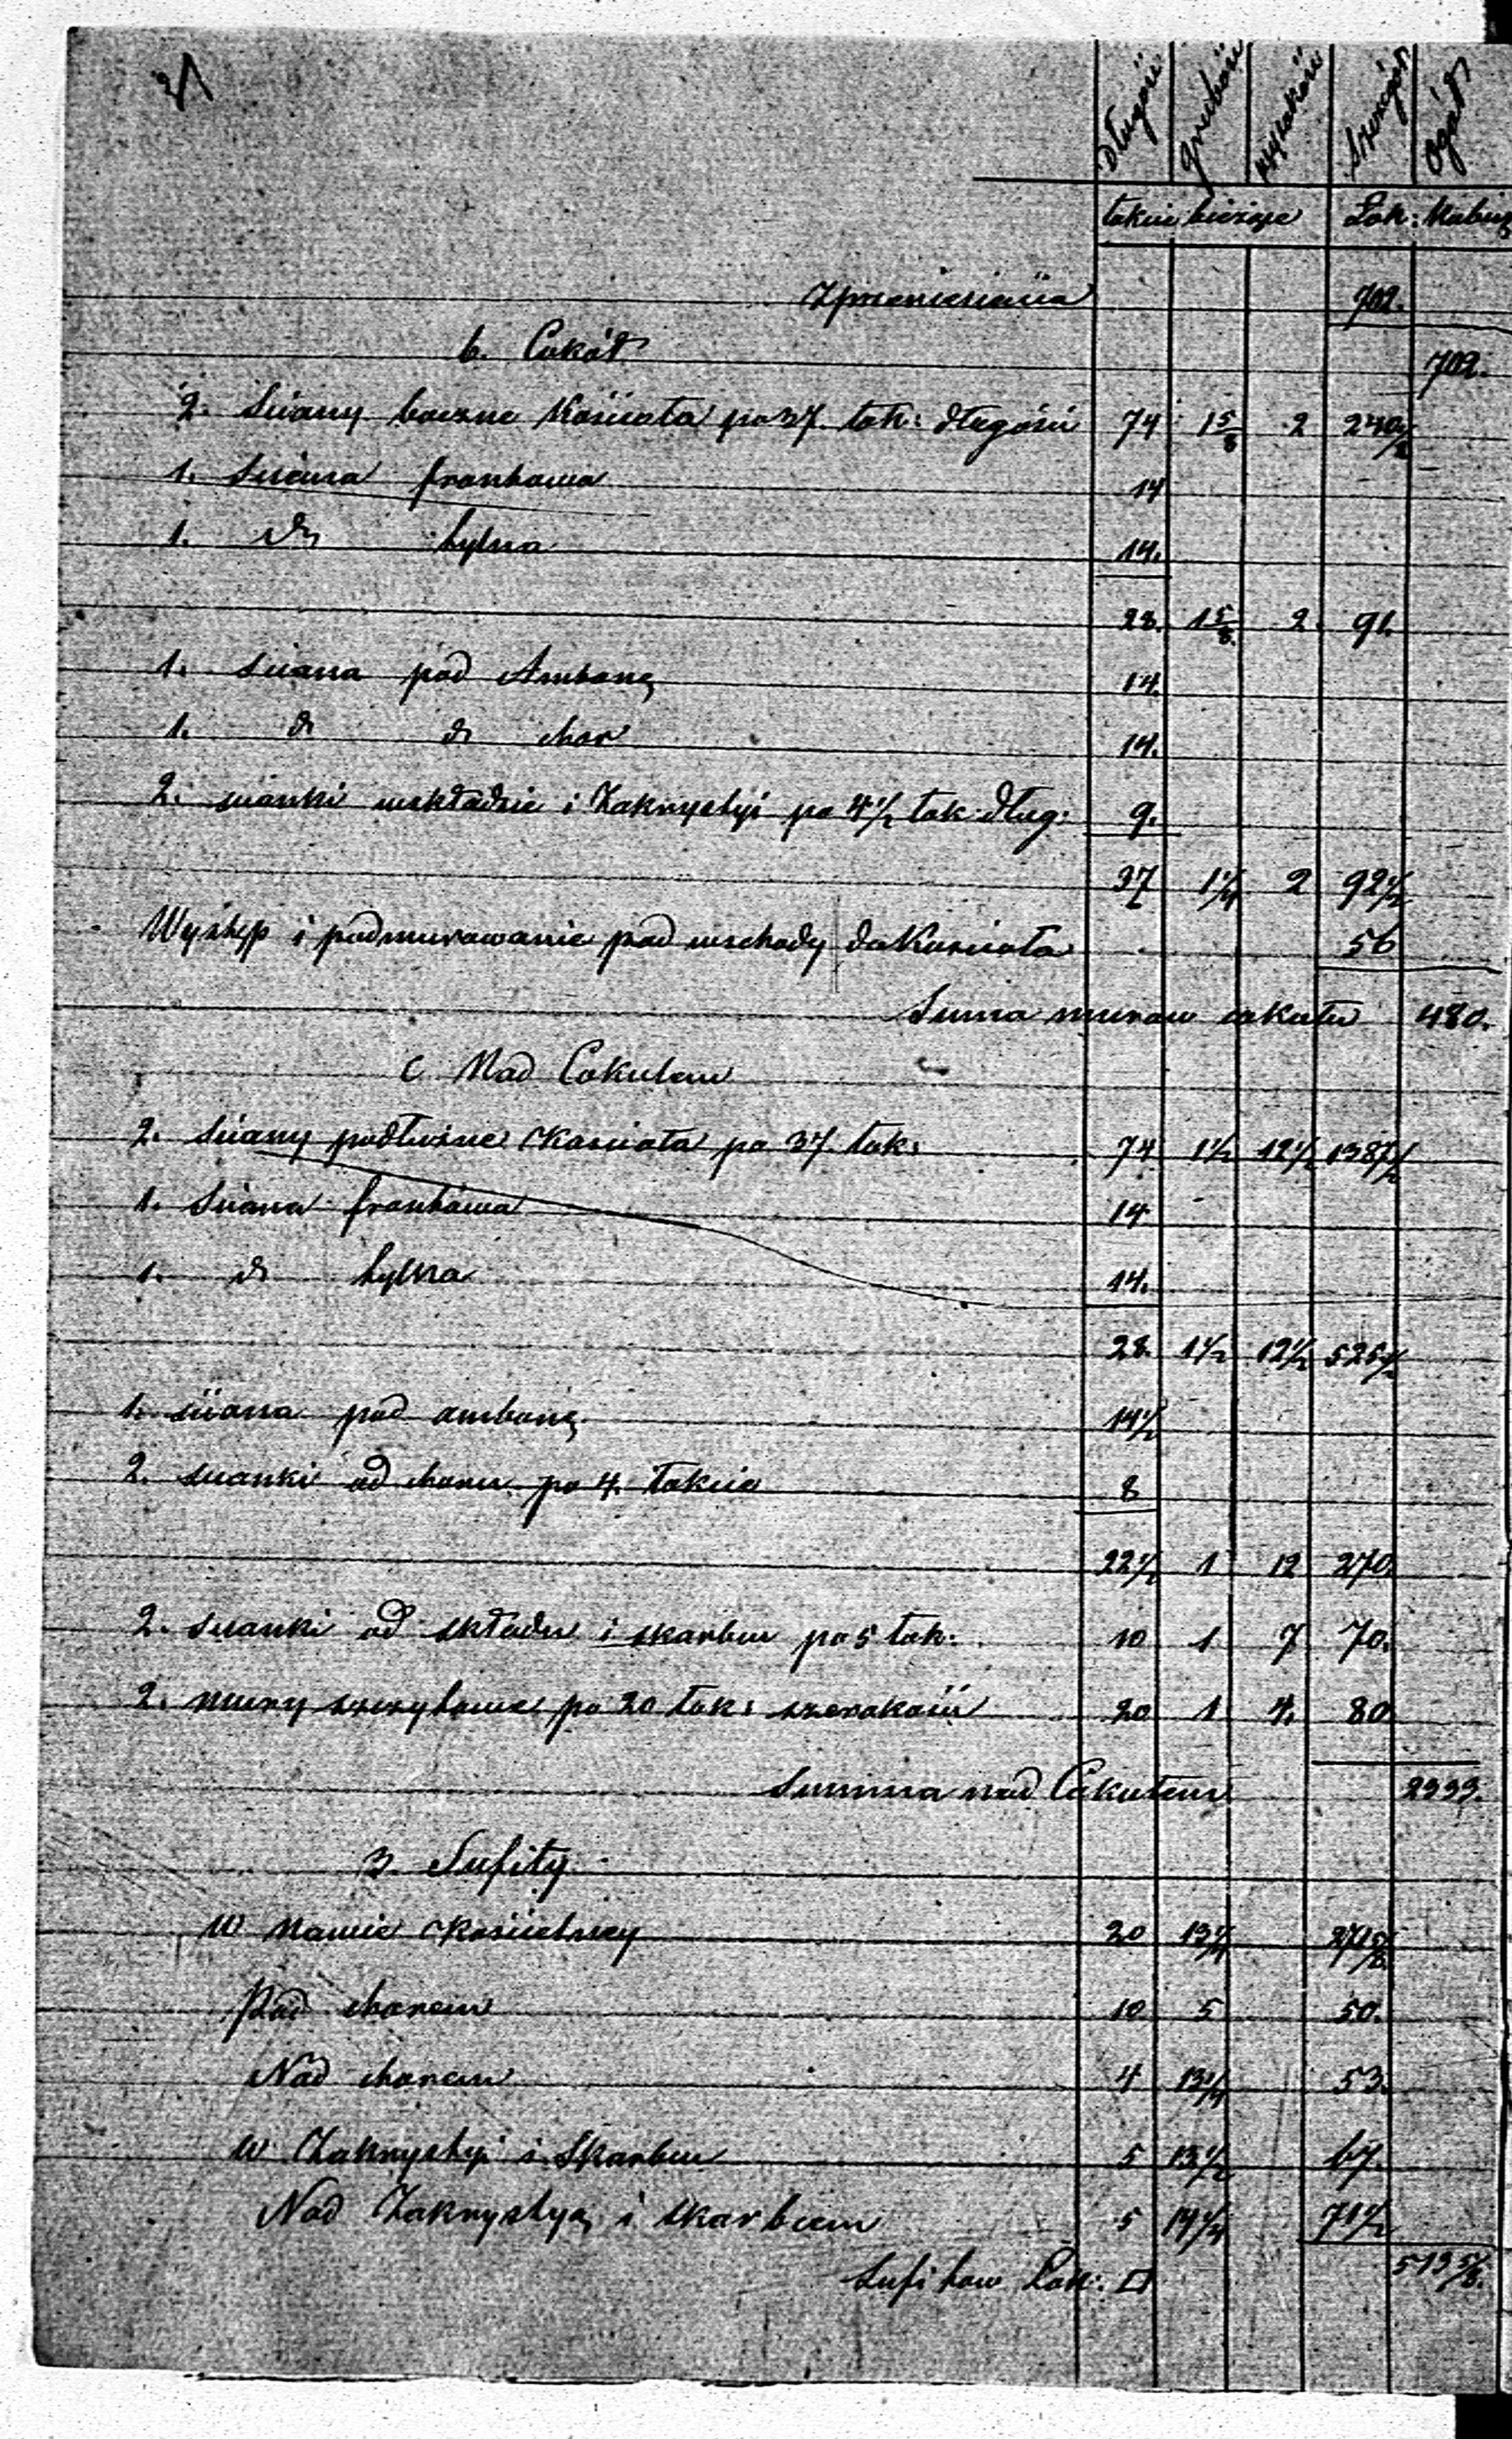 31
długość grubość wysokość szczegół ogół
łokcie bieżące Łok: Kubicz
Zprzeniesienia 702.
b. Cokół 702.
2. Sciany boczne Kościoła po 37. łok: długości 74 1 5/8 2 240 1/2
1. Sciana frontowa 14
1. do tylna 14.
28. 1 5/8 2. 91.
1. sciana pod Amboną 14.
1. do do chor 14.
2. scianki w składzie i Zakrystyi po 4 1/2 łok. dług: 9.
37 1 1/4 2 92 1/2
Występ i podmurowanie pod wschody do Koscioła 56
Suma murow cokułu 480.
c Nad Cokulem
2. Sciany podłużne Koscioła po 37. łok: 74 1 1/2 12 1/2 1387 1/2
1. Sciana frontowa 14
1. do tylna 14.
28. 1 1/2 12 1/2 525
1. sciana pod amboną 14 1/2
2. scianki od choru po 4. łokcie 8
22 1/2 1 12 270.
2. scianki od składu i skarbcu po 5 łok: 10 1 7 70.
2. mury szczytowe po 20 łok: szerokości 20 1 4. 80
Summa nad Cokułem 2333.
3. Sufity
W Nawie Kościelney 20 13 1/4 271 5/8
Pod chorem 10 5 50.
Nad chorem 4 13 1/4 53.
W Zakrystyi i Skarbcu 5 13 1/2 67.
Nad Zakrystyą i skarbcem 5 14 1/4 71 1/2
Sufitow Łok: □ 513 5/8.